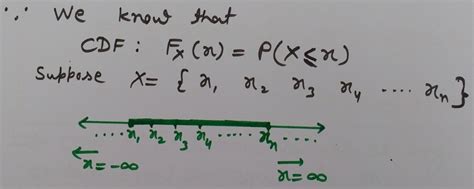 ∵ We know that
CDF : Fₓ(x) = P(X ⩽ x)
Suppose X = { x₁ x₂ x₃ x₄ ---- xₙ}
..... x₁ x₂ x₃ x₄ ...... xₙ .....
x = -∞ x = ∞